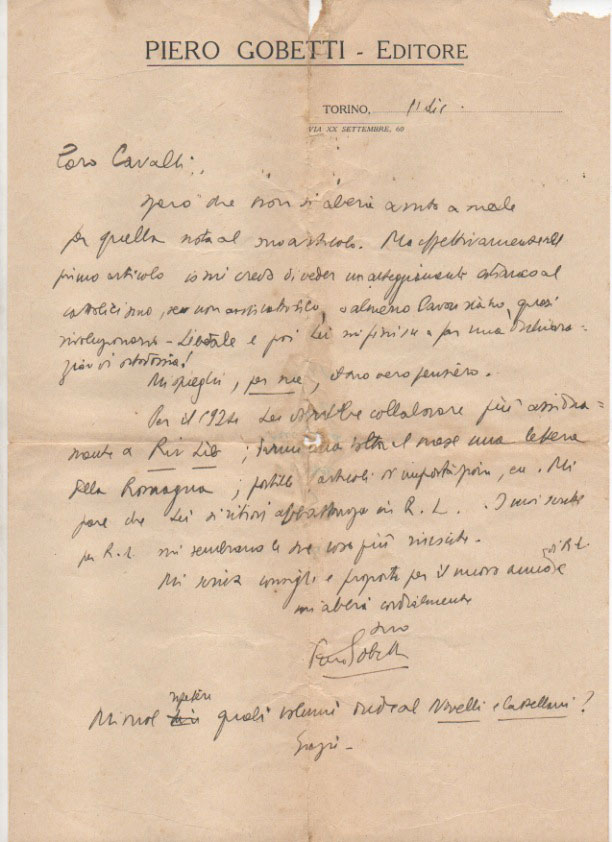 PIERO GOBETTI - EDITORE
TORINO, 11 dic.
VIA XX SETTEMBRE, 60
Caro Cavalli,
spero che non si abbia avuto a male
per quella nota al suo articolo. Ma effettivamente nel
primo articolo io mi credo di veder un atteggiamento al
cattolicismo, se non anticattolico, almeno Cavouriano, quasi
rivoluzionario - Liberale e poi Lei mi finisce per una dichiara-
zione di ortodossia!
Mi spieghi, per me, il suo vero pensiero.
Per il 1924 Lei dovrebbe collaborare più assidua=
mente a Riv Lib; una volta al mese una lettera
della Romagna; postille, articoli d'importazione, ecc. Mi
pare che Lei si ritrovi abbastanza in R. L. I suoi scritti
per R. L. mi sembrano le sue cose più riuscite.
Mi scriva consigli e proposte per il nuovo anno di R. L.
mi abbia cordialmente
suo
Piero Gobetti
Mi vuol ripetere quali volumi diede al Novelli e Castellani?
Grazie -